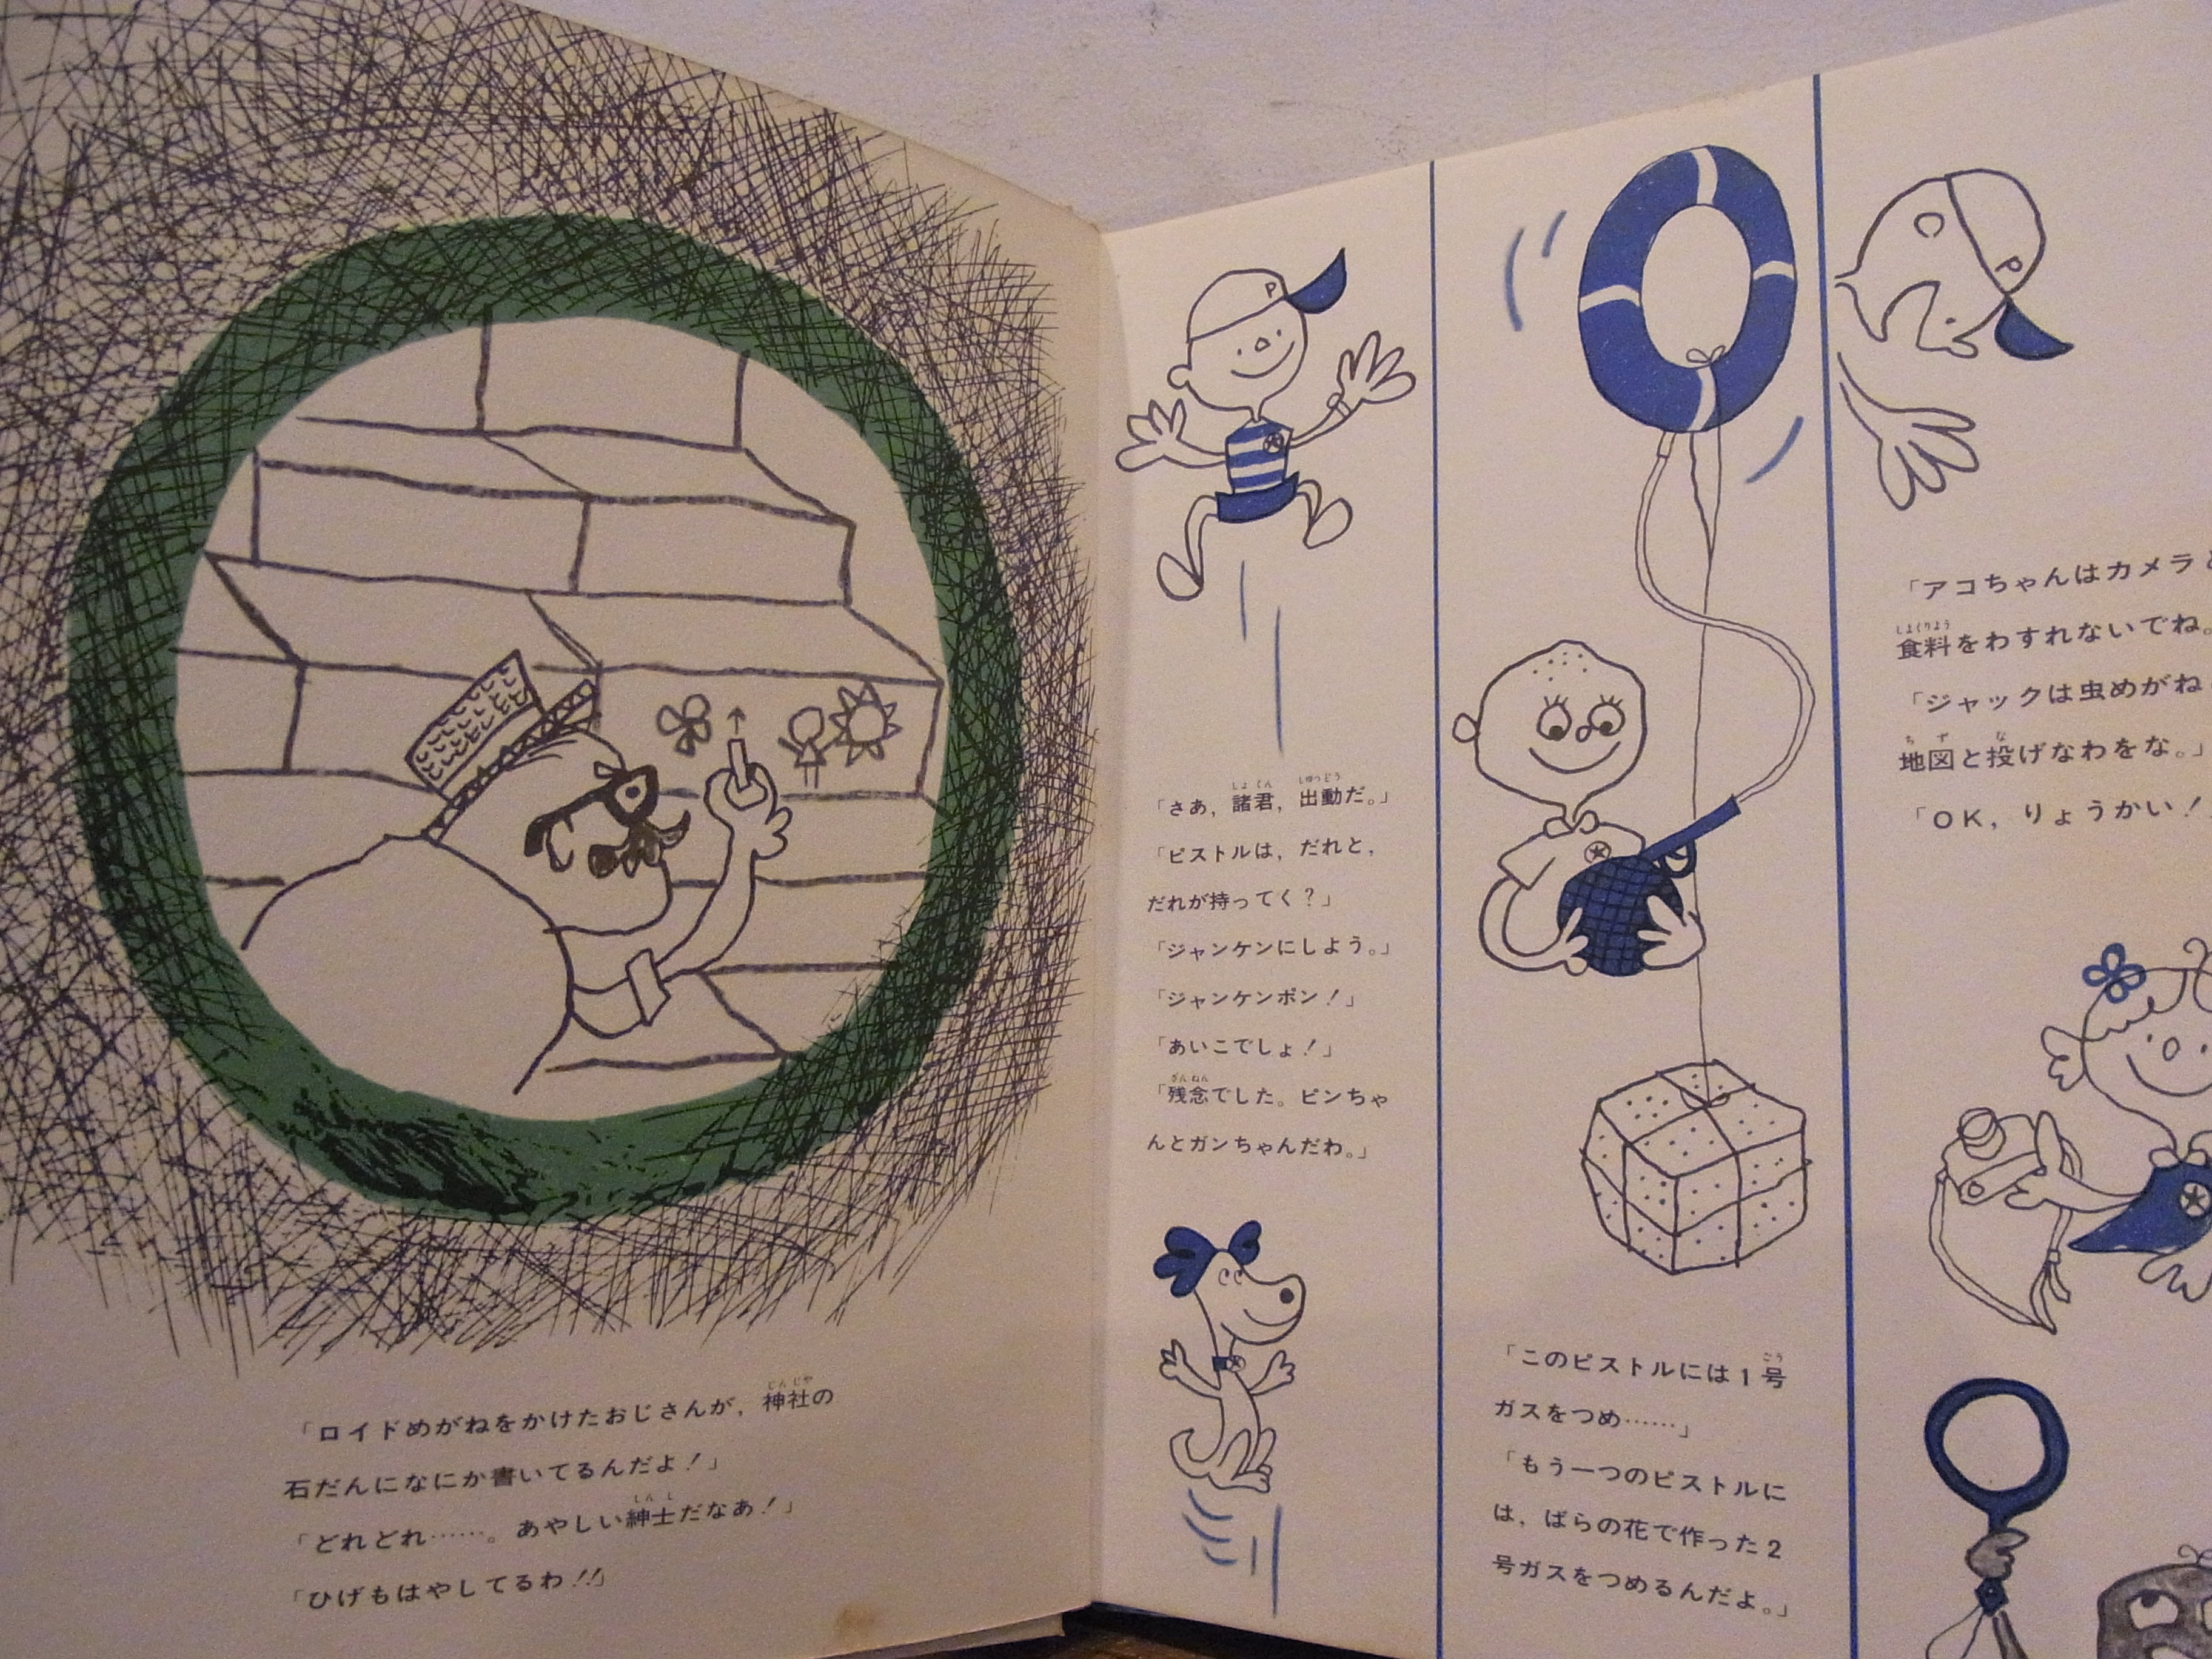 「ロイドめがねをかけたおじさんが，神社の
石だんになにか書いてるんだよ！」
「どれどれ……。あやしい紳士だなあ！」
「ひげもはやしてるわ!!」
P
「さあ，諸君，出動だ。」
「ピストルは，だれと，
だれが持ってく？」
「ジャンケンにしよう。」
「ジャンケンポン！」
「あいこでしょ！」
「残念でした。ピンちゃ
んとガンちゃんだわ。」
「このピストルには1号
ガスをつめ……」
「もう一つのピストルに
は，ばらの花で作った2
号ガスをつめるんだよ。」
P
「アコちゃんはカメラと
食料をわすれないでね。
「ジャックは虫めがね
地図と投げなわをな。」
「OK，りょうかい！